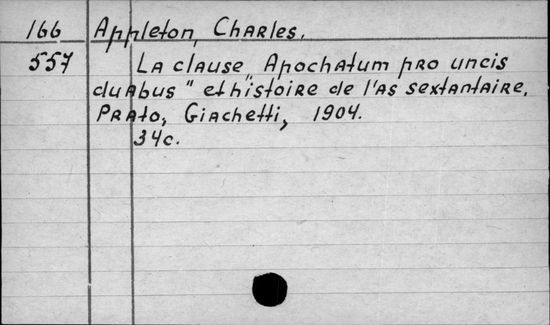 166 Appleton, Charles.
557 La clause „Apochatum pro uncis
duabus" et histoire de l'as sextantaire.
Prato, Giachetti, 1904.
34c.